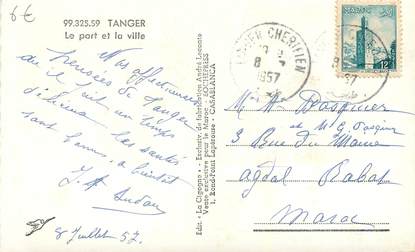 6€
99.325.59 TANGER
Le port et la ville
Nos affectueuses
pensées de Tanger
où il fait un temps
délicieux. Les santés
sont bonnes, à bientôt
8 Juillet 57
Edit. « La Cigogne » - Exclusiv. de fabrication André Leconte
Vente exclusive pour le Maroc : LOCHEPRESS
1, Rond-Point Lapérouse - CASABLANCA
TANGER CHERIFIEN
8 - 7
1957
MAROC
12F
3 Rue du
Agdal Rabat
Maroc